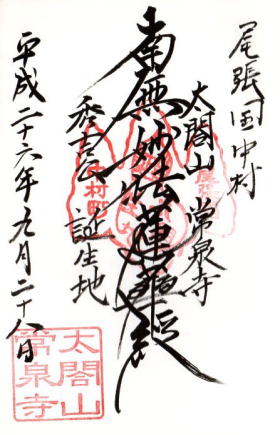 尾張国中村
太閤山 常泉寺
南無妙法蓮華経
秀吉誕生地
平成二十六年九月二十八日
太閤山
常泉寺